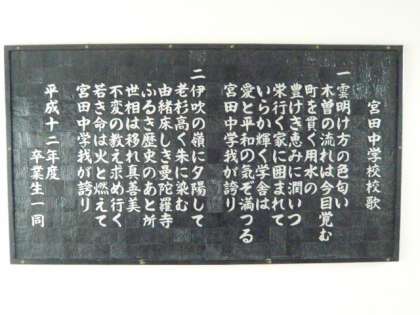 宮田中学校校歌
一 雲明け方の色匂い
木曽の流れは今目覚む
町を貫く用水の
豊けき恵みに潤いつ
栄行く家に囲まれて
いらか輝く学舎は
愛と平和の気ぞ満つる
宮田中学我が誇り
二 伊吹の嶺に夕陽して
老杉高く朱に染む
由緒床しき曼陀羅寺
ふるき歴史のあと所
世相は移れ真善美
不変の教え求め行く
若き命は火と燃えて
宮田中学我が誇り
平成十二年度
卒業生一同